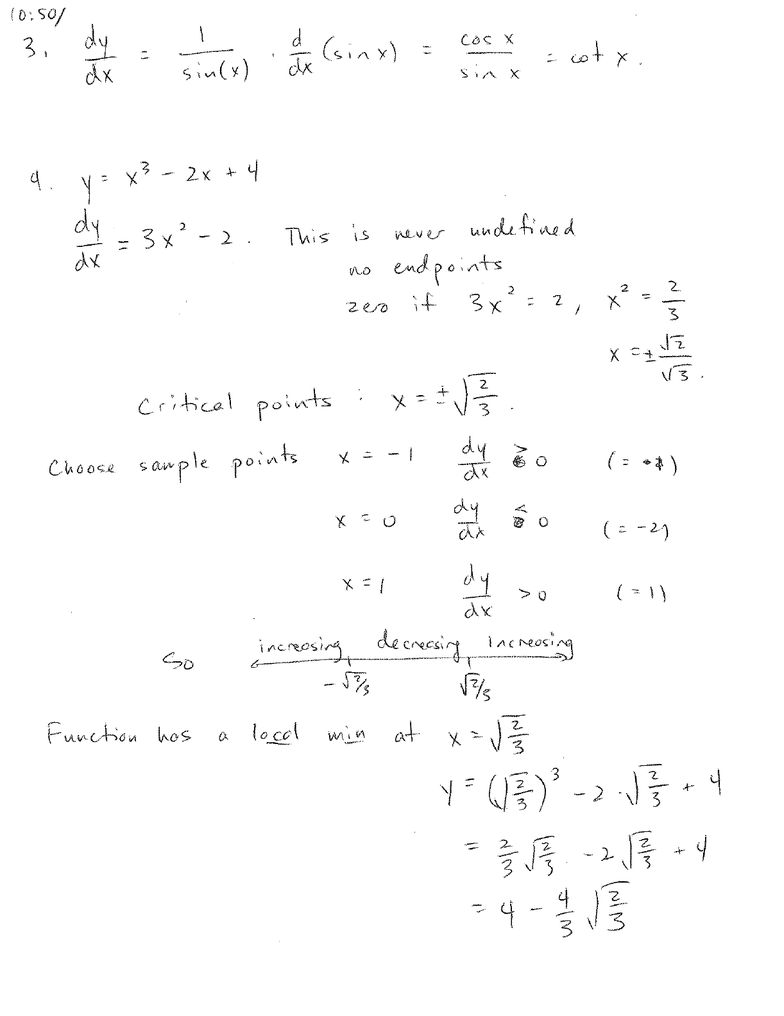 10:50/
3. dy/dx = 1/sin(x) · d/dx (sin x) = cos x/sin x = cot x.
4. y = x³ - 2x + 4
dy/dx = 3x² - 2. This is never undefined
no endpoints
zero if 3x² = 2, x² = 2/3
x = ± √2/√3.
Critical points : x = ± √(2/3).
Choose sample points x = -1 dy/dx > 0 (= 1)
x = 0 dy/dx < 0 (= -2)
x = 1 dy/dx > 0 (= 1)
So increasing decreasing increasing
-√(2/3) √(2/3)
Function has a local min at x = √(2/3)
y = (√(2/3))³ - 2·√(2/3) + 4
= 2/3 √(2/3) - 2√(2/3) + 4
= 4 - 4/3 √(2/3)